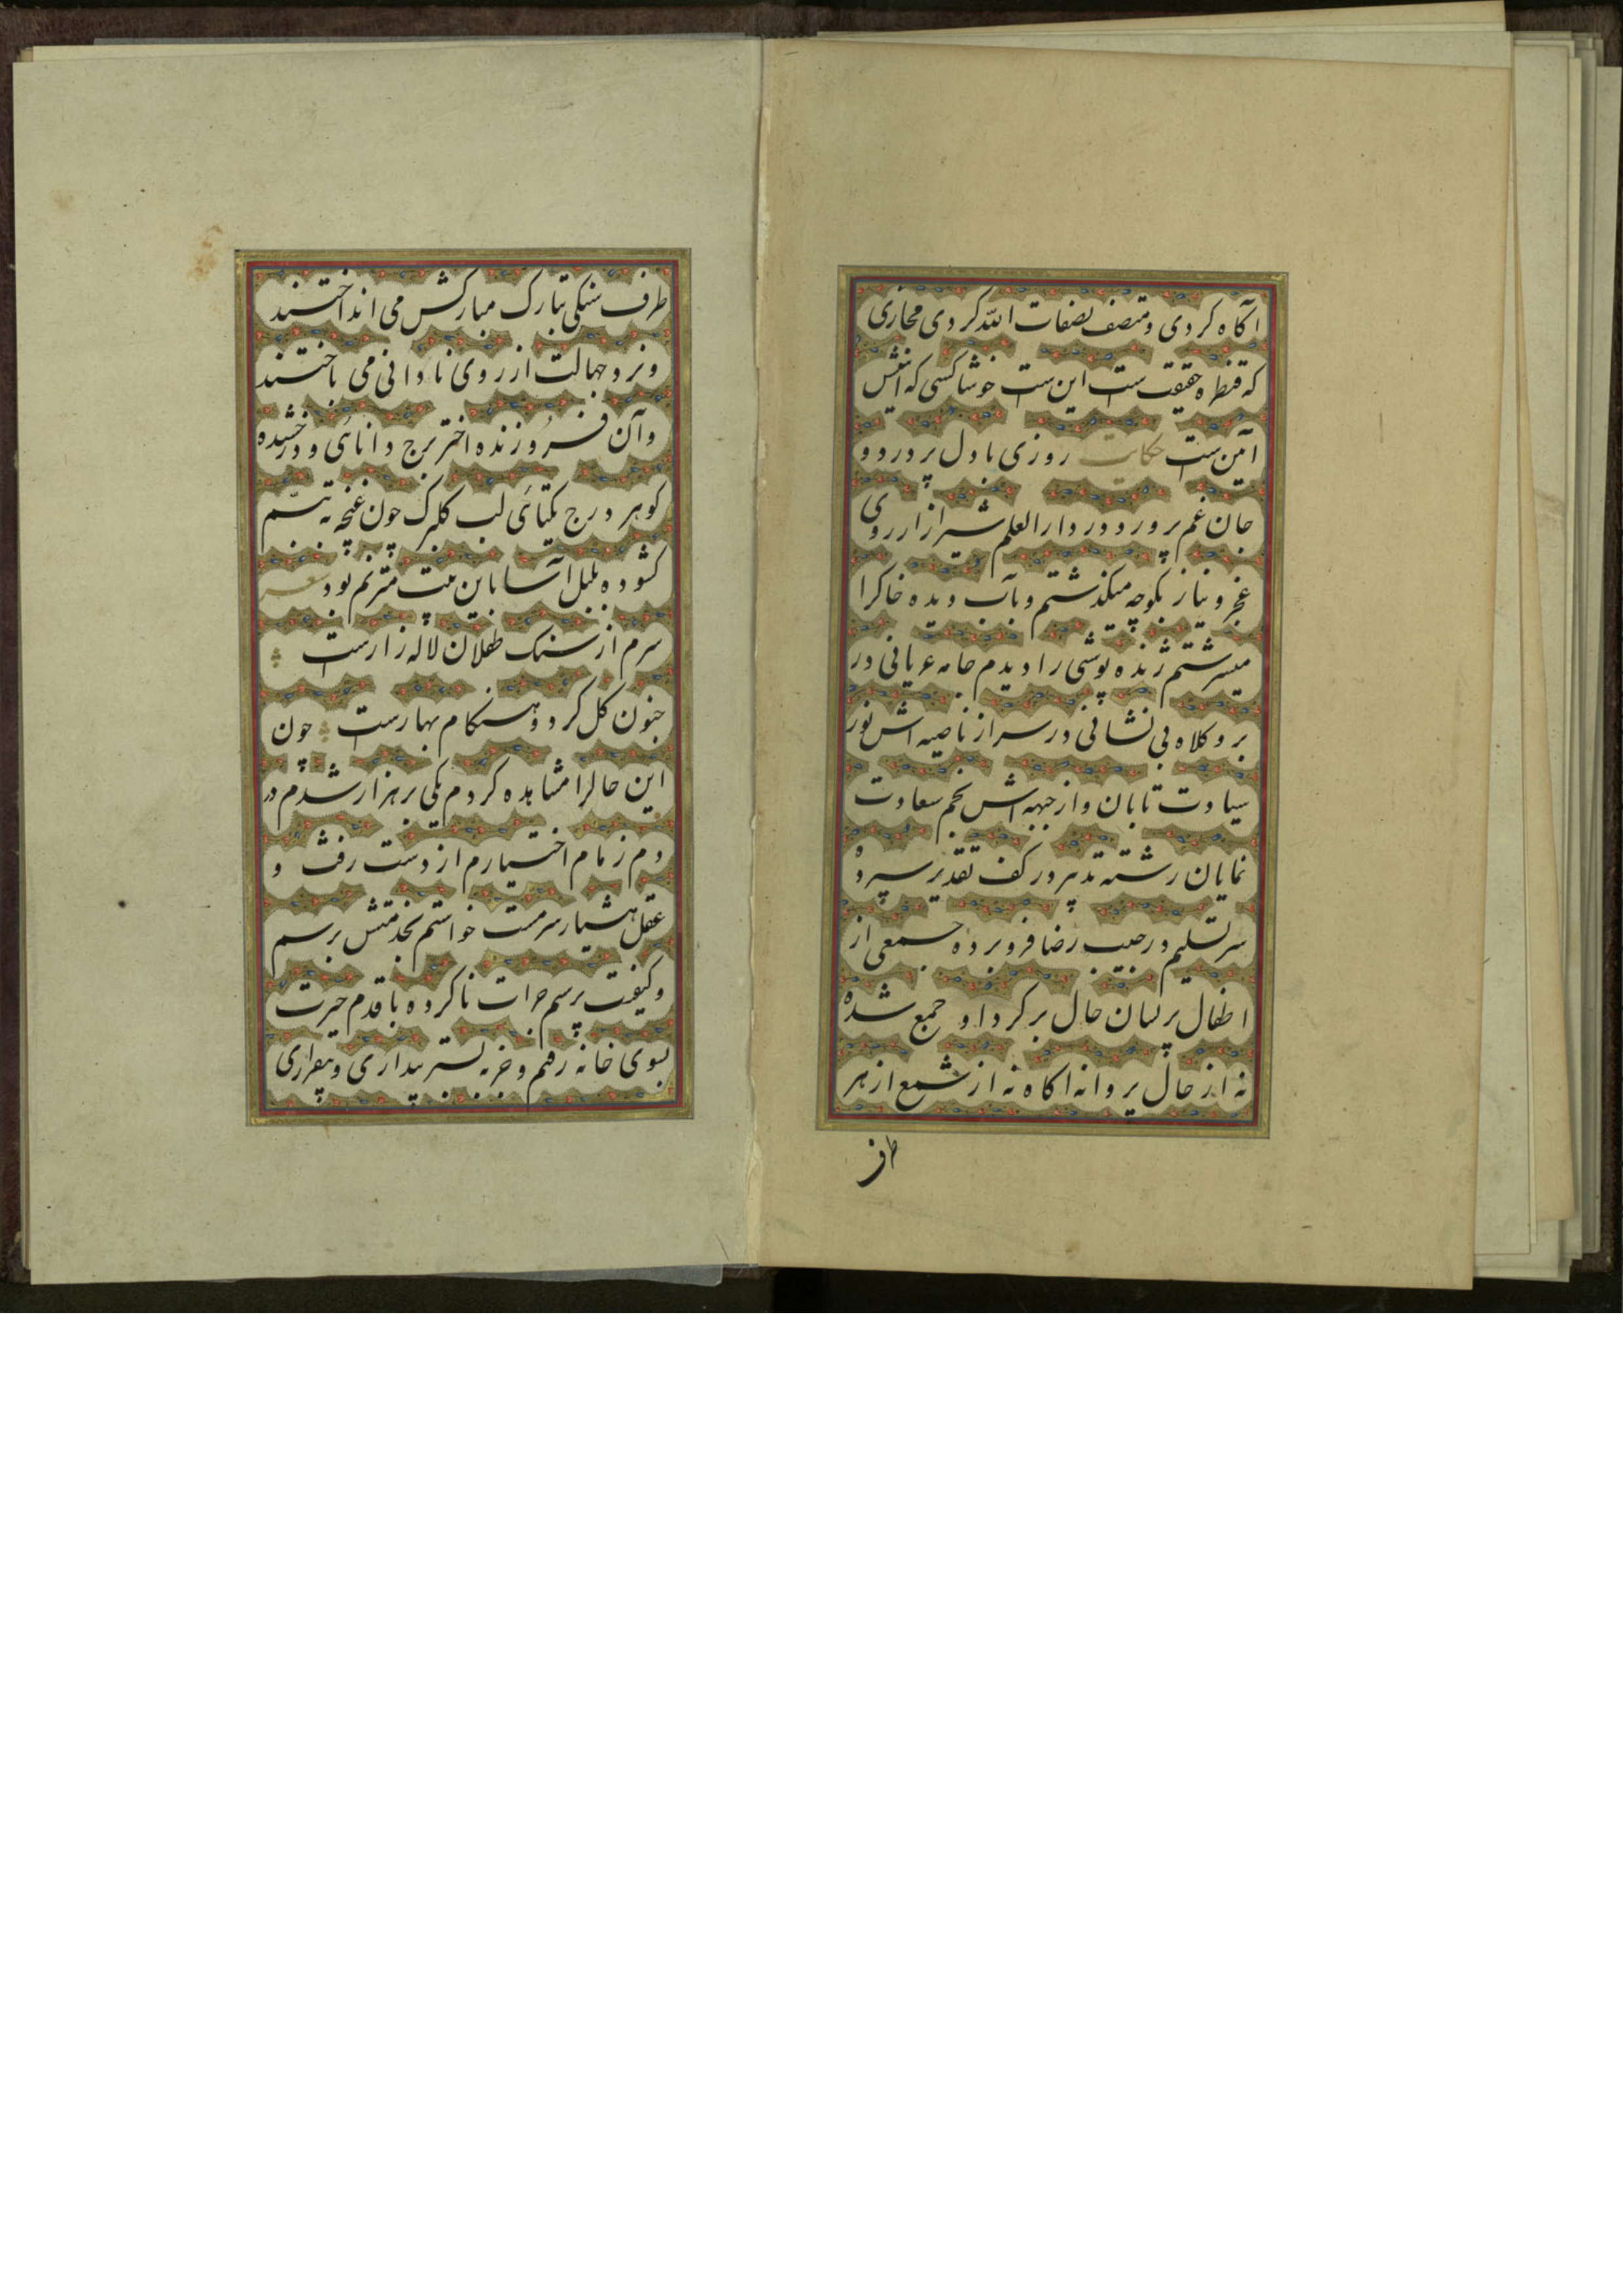 آکاه کردی و متصف بصفات الله کردی مجازی
که قنطره حقیقت ست این ست خوشا کسی که از
آمن ست حکایت روزی با دل پر درد و
جان غم پرورد در دار العلم شیراز از روی
عجز و نیاز بکوچه میکذشتم و بآب دیده خاکرا
میسرشتم ژنده پوشی را دیدم جامه عریانی در
بر و کلاه بی نشانی در سر از ناصیه اش نور
سیادت تابان و از جبهه اش نجم سعادت
نمایان رشته تدبیر در کف تقدیر سپرده
سر تسلیم در جیب رضا فرو برده جمعی از
اطفال پریسان حال بر کرد او جمع شده
نه از حال پروانه آکاه نه از شمع از هر
طرف
طرف سنکی بتارک مبارکش می انداختند
و نرد جهالت از روی نادانی می باختند
و آن فروزنده اختر برج دانائی و درخشیده
کوهر درج یکتائی لب کلبرک چون غنچه به تبسم
کشوده بلبل آسا باین بیت مترنم بود شعر
سرم از سنک طفلان لاله زارست
جنون کل کرد و هنکام بهارست چون
این حالرا مشاهده کردم یکی بر هزار شدم در
دم زمام اختیارم از دست رفت و
عقل هشیار سرمست خواستم بخدمتش برسم
و کیفیت پرسم جرات ناکرده با قدم حیرت
بسوی خانه رفتم و جز به بستر بیداری و بیقراری